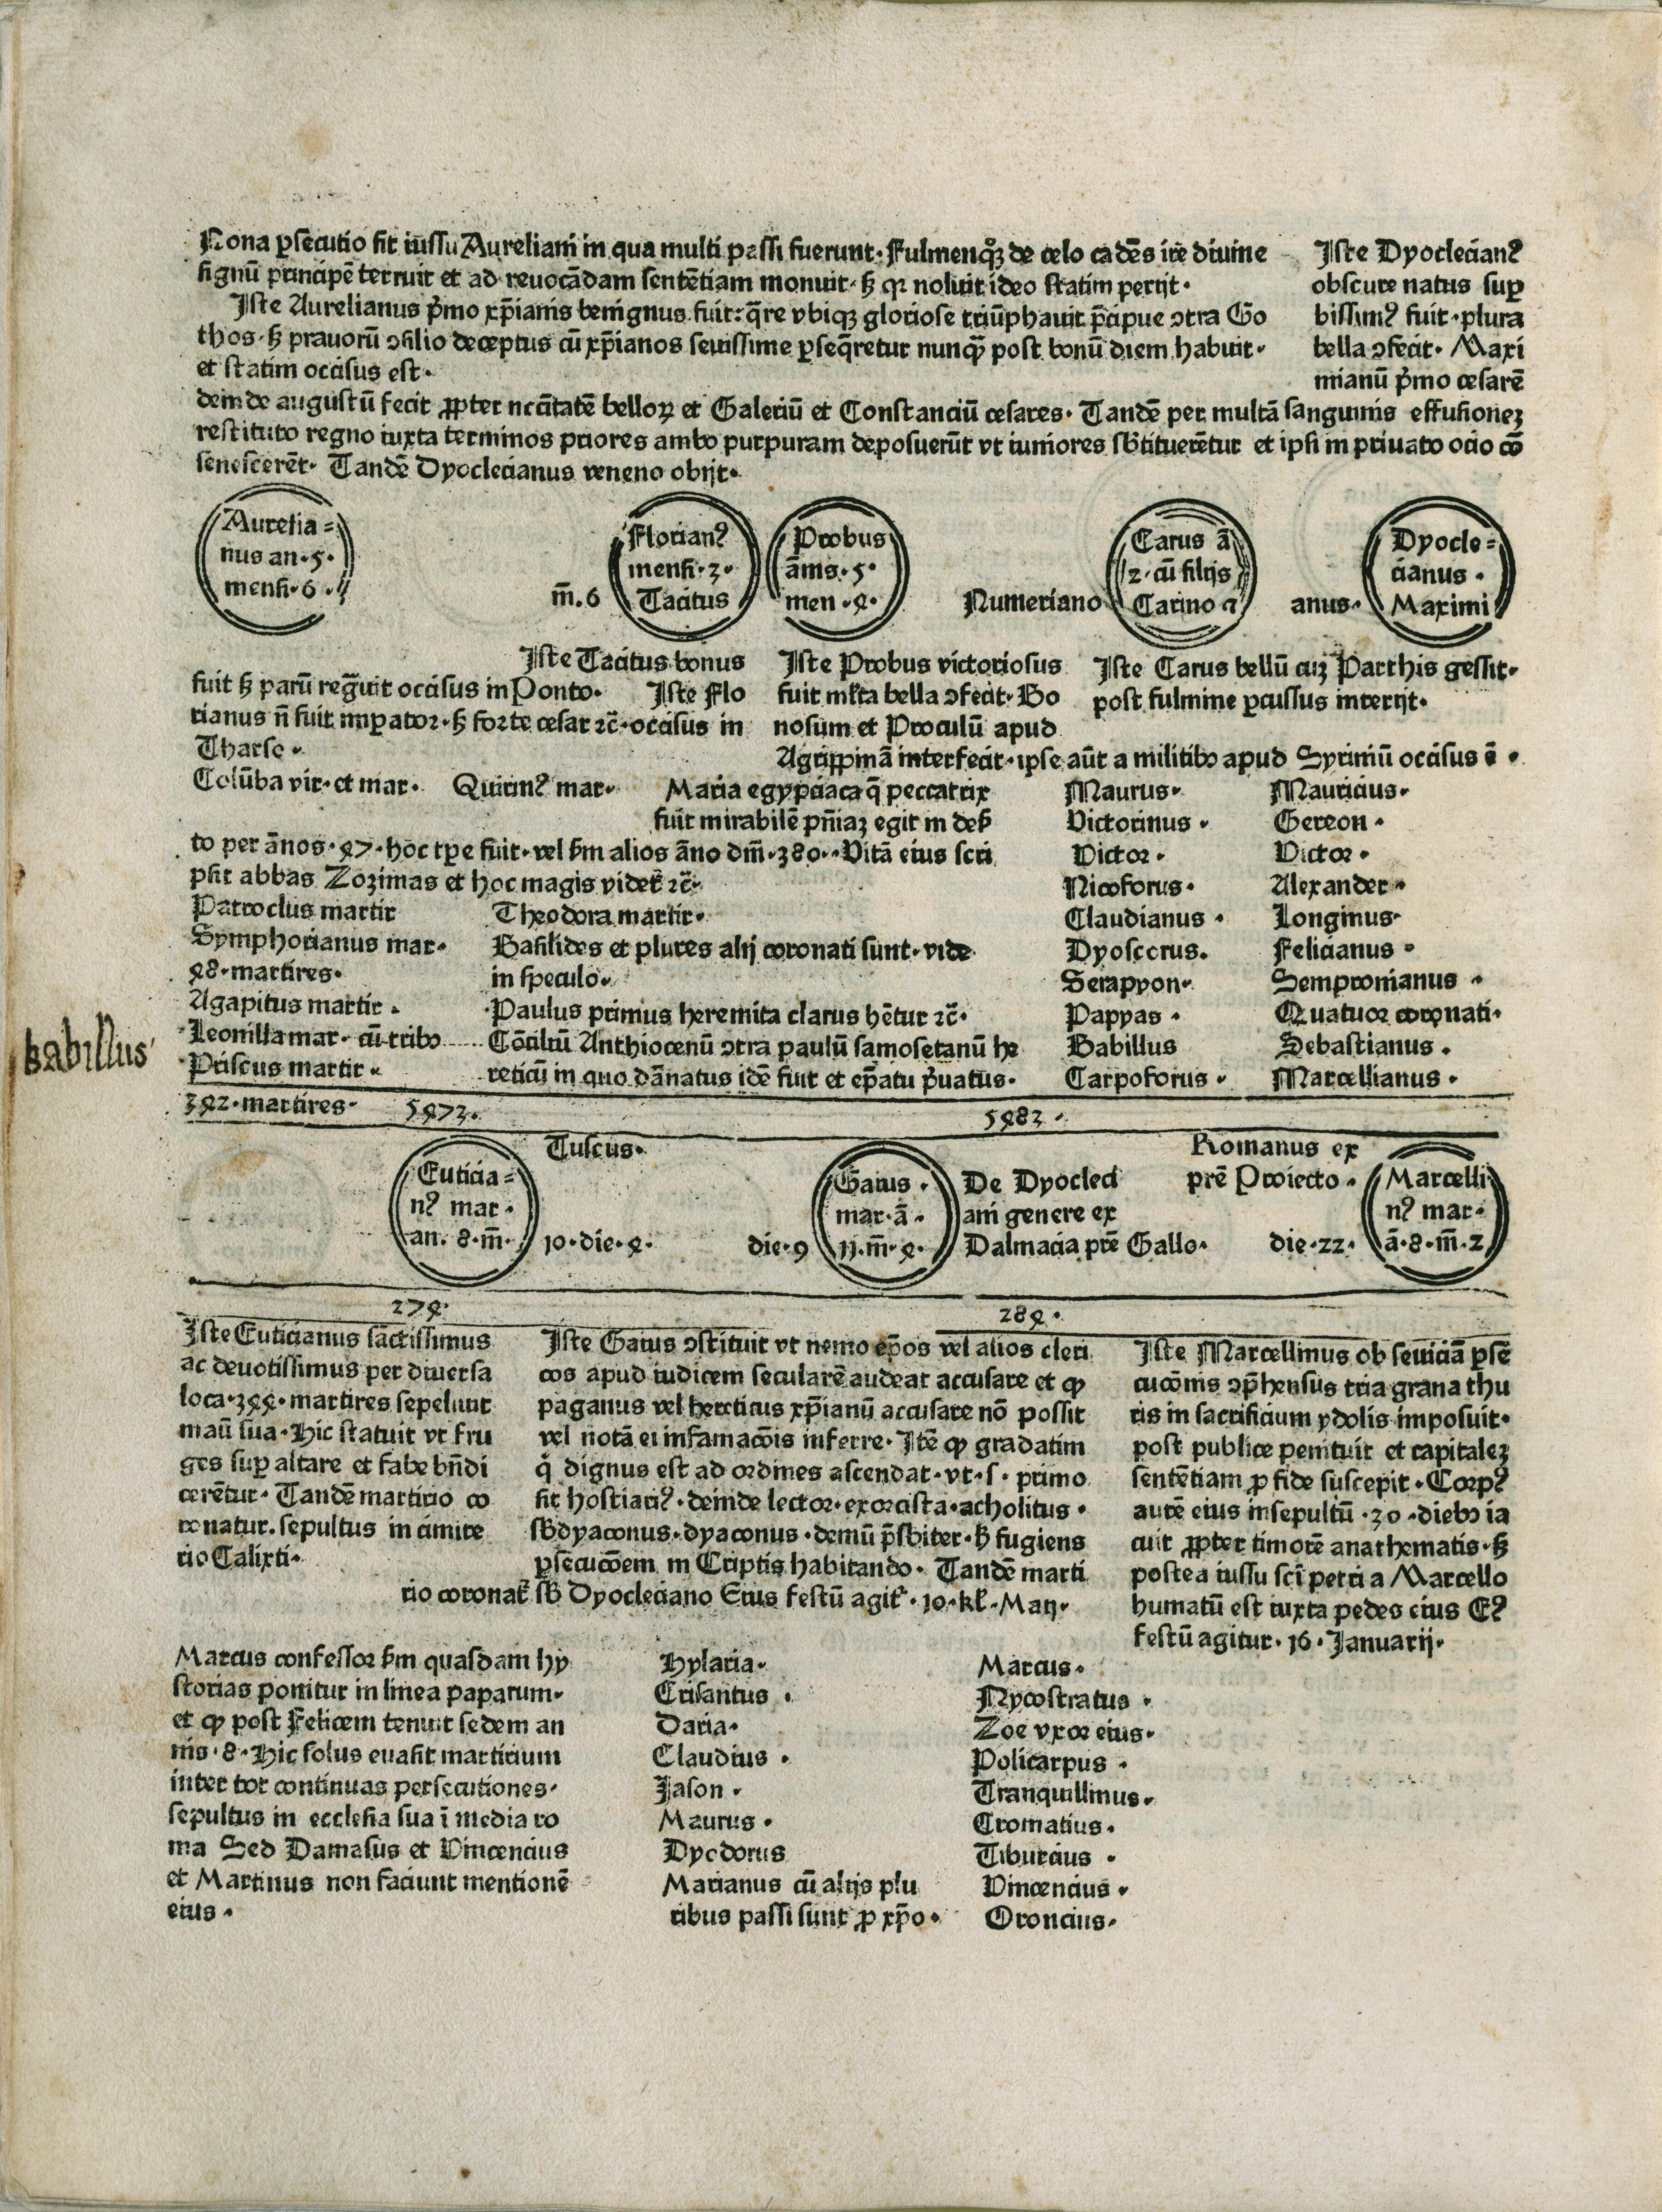 Nona ꝑsecutio fit iussu Aureliani in qua multi passi fuerunt· Fulmenqꝫ de celo cadēs ire diuine
signū principē terruit et ad reuocādam sentētiam monuit· sꝫ qꝛ noluit ideo statim perijt·
Iste Aurelianus p̄mo xp̄ianis benignus fuit: q̄re vbiqꝫ gloriose triūphauit p̄cipue ↄtra Go
thos· sꝫ prauorū ↄsilio deceptus cū xp̄ianos seuissime ꝑseq̄retur nunqꝫ post bonū diem habuit·
et statim occisus est·
Iste Dyoclecianꝰ
obscure natus suꝑ
bissimꝰ fuit· plura
bella ↄfecit· Maxi
mianū p̄mo cesarē
deinde augustū fecit ꝓpter ncc̄itatē belloꝝ et Galeriū et Constanciū cesares· Tandē per multā sanguinis effusionēꝫ
restituto regno iuxta terminos priores ambo purpuram deposuerūt vt iuniores sb̄tituerētur et ipsi in priuato ocio cō
senescerēt· Tandē Dyoclecianus veneno obijt·
Aurelia=
nus an·5·
mensi·6·
m̄.6
Florianꝰ
mensi·3·
Tacitus
Probus
ānis·5·
men·4·
Numeriano
Carus ā
2·cū filijs
Carino ⁊
anus·
Dyocle=
cianus·
Maximi
Iste Tacitus bonus
fuit sꝫ parū regnauit occisus in Ponto· Iste Flo
rianus nō fuit imꝑator· sꝫ forte cesar ⁊c̄· occisus in
Tharso·
Iste Probus victoriosus
fuit ml̄ta bella ↄfecit· Bo
nosum et Proculū apud
Agrippinā interfecit· ipse aūt a militibꝰ apud Syrimū occisus ē·
Iste Carus bellū cuꝫ Parthis gessit·
post fulmine ꝑcussus interijt·
Colūba vir· et mar· Quirinꝰ mar·
Maria egypciaca q̄ peccatrix
fuit mirabilē pn̄iaꝫ egit in deẜ
to per ānos·47· hoc tꝑe fuit· vel ẜm alios āno dm̄·380· Vitā eius scri
psit abbas Zozimas et hoc magis videt᷑ ⁊c̄·
Patroclus martir
Symphorianus mar·
48·martires·
Agapitus martir·
Leonilla mar· cū tribꝰ
Priscus martir·
392·martires·
Theodora martir·
Basilides et plures alij coronati sunt· vide
in speculo·
Paulus primus heremita clarus hētur ⁊c̄·
Cōciliū Anthiocenū ↄtra paulū samosetanū he
reticū in quo dānatus idē fuit et ep̄atu p̄uatus·
Maurus·
Victorinus·
Victor·
Nicoforus·
Claudianus·
Dyoscorus.
Serapyon·
Pappas·
Babillus
Carpoforus·
Mauricius·
Gereon·
Victor·
Alexander·
Longinus·
Felicianus·
Sempronianus·
Quatuor coronati·
Sebastianus·
Marcellianus·
babillus
5473·
5483·
Euticia=
nꝰ mar·
an. 8·m̄·
Tuscus·
10·die·4·
die·9
Gaius·
mar·ā·
11·m̄·4·
De Dyocleci
ani genere ex
Dalmacia pr̄e Gallo·
Romanus ex
pr̄e Proiecto·
die·22·
Marcelli
nꝰ mar·
ā·8·m̄·2
274·
284·
Iste Euticianus sāctissimus
ac deuotissimus per diuersa
loca·344· martires sepeliuit
manū sua· Hic statuit vt fru
ges suꝑ altare et fabe bn̄di
cerētur· Tandē martirio co
ronatur. sepultus in cimite
rio Calixti·
Iste Gaius ↄstituit vt nemo ep̄os vel alios cleri
cos apud iudicem secularē audeat accusare et ꝙ
paganus vel hereticus xp̄ianū accusare nō possit
vel notā ei infamacōis inferre· Itē ꝙ gradatim
q̇ dignus est ad ordines ascendat· vt·s· primo
sit hostiariꝰ· deinde lector· exorcista· acholitus·
sb̄dyaconus· dyaconus· demū p̄sbiter· sꝫ fugiens
ꝑsecucōem in Criptis habitando· Tandē marti
rio coronat᷑ sb̄ Dyocleciano Eius festū agit᷑· 10·kl̄·Maij·
Iste Marcellinus ob seuiciā ꝑse
cucōnis ↄp̄hensus tria grana thu
ris in sacrificium ydolis imposuit·
post publice penituit et capitaleꝫ
sentētiam ꝓ fide suscepit· Corpꝰ
autē eius insepultū·30·diebꝰ ia
cuit ꝓpter timorē anathematis· sꝫ
postea iussu scī petri a Marcello
humatū est iuxta pedes eius Eꝰ
festū agitur·16·Januarij·
Marcus confessor ẜm quasdam hy
storias ponitur in linea paparum·
et ꝙ post Felicem tenuit sedem an
nis·8· Hic solus euasit martirium
inter tot continuas persecutiones·
sepultus in ecclesia sua ī media ro
ma Sed Damasus et Vincencius
et Martinus non faciunt mentionē
eius·
Hylaria·
Crisantus·
Daria·
Claudius·
Jason·
Maurus·
Dyodorus
Marianus cū alijs plu
ribus passi sunt ꝓ xp̄o·
Marcus·
Nycostratus·
Zoe vxor eius·
Policarpus·
Tranquillinus·
Cromatius·
Tiburcius·
Vincencius·
Oroncius·